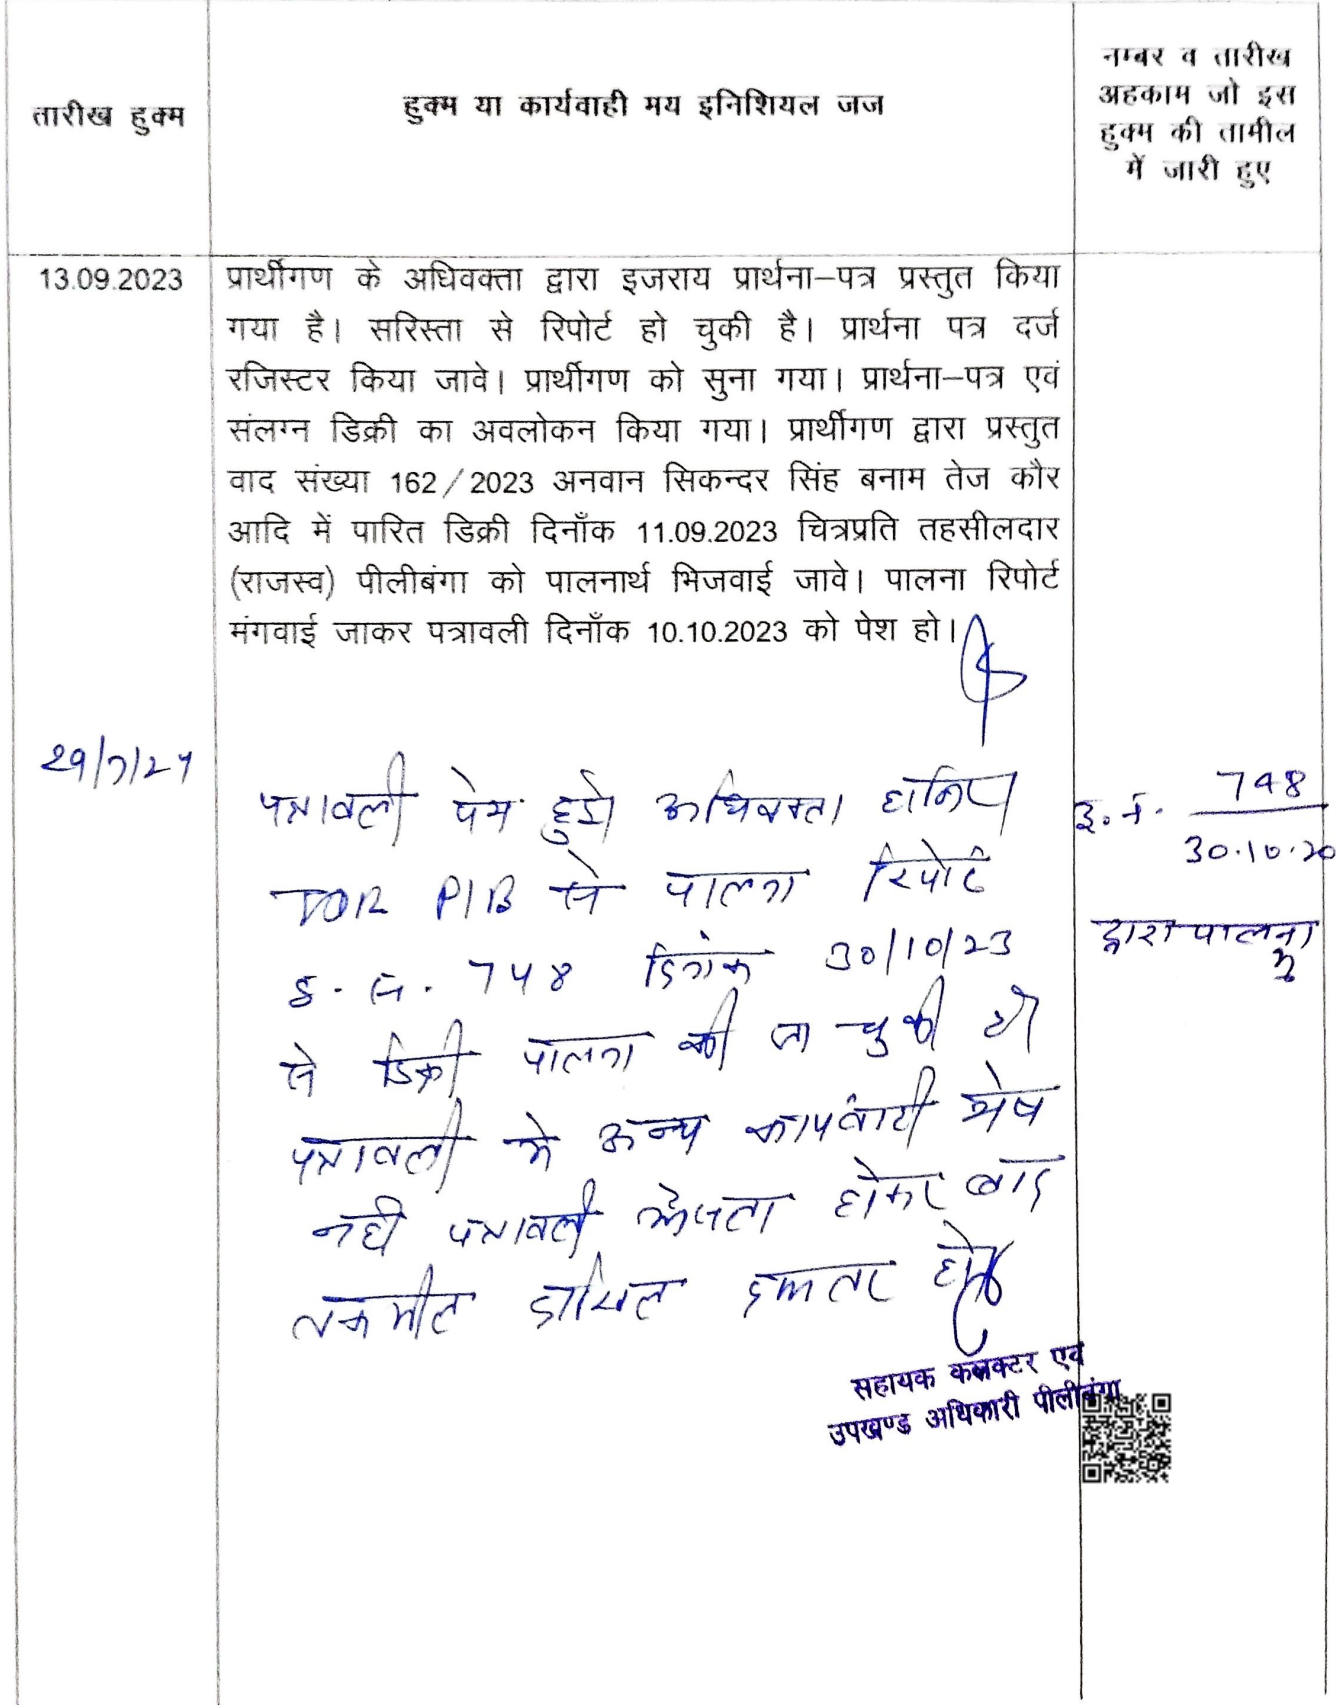 तारीख हुक्म
हुक्म या कार्यवाही मय इनिशियल जज
नम्बर व तारीख
अहकाम जो इस
हुक्म की तामील
में जारी हुए
13.09.2023
प्रार्थीगण के अधिवक्ता द्वारा इजराय प्रार्थना–पत्र प्रस्तुत किया
गया है। सरिस्ता से रिपोर्ट हो चुकी है। प्रार्थना पत्र दर्ज
रजिस्टर किया जावे। प्रार्थीगण को सुना गया। प्रार्थना–पत्र एवं
संलग्न डिक्री का अवलोकन किया गया। प्रार्थीगण द्वारा प्रस्तुत
वाद संख्या 162/2023 अनवान सिकन्दर सिंह बनाम तेज कौर
आदि में पारित डिक्री दिनाँक 11.09.2023 चित्रप्रति तहसीलदार
(राजस्व) पीलीबंगा को पालनार्थ भिजवाई जावे। पालना रिपोर्ट
मंगवाई जाकर पत्रावली दिनाँक 10.10.2023 को पेश हो।
29/7/24
पत्रावली पेश हुई। अधिवक्ता हाजिर
TDR PIB से पालना रिपोर्ट
इ. न. 748 दिनांक 30/10/23
से डिक्री पालना की जा चुकी है।
पत्रावली में अन्य कार्यवाही शेष
नही पत्रावली फैसला होकर बाद
तकमील दाखिल दफ्तर हो
इ. न. 748
30.10.20
द्वारा पालना
सहायक कलक्टर एवं
उपखण्ड अधिकारी पीलीबंगा